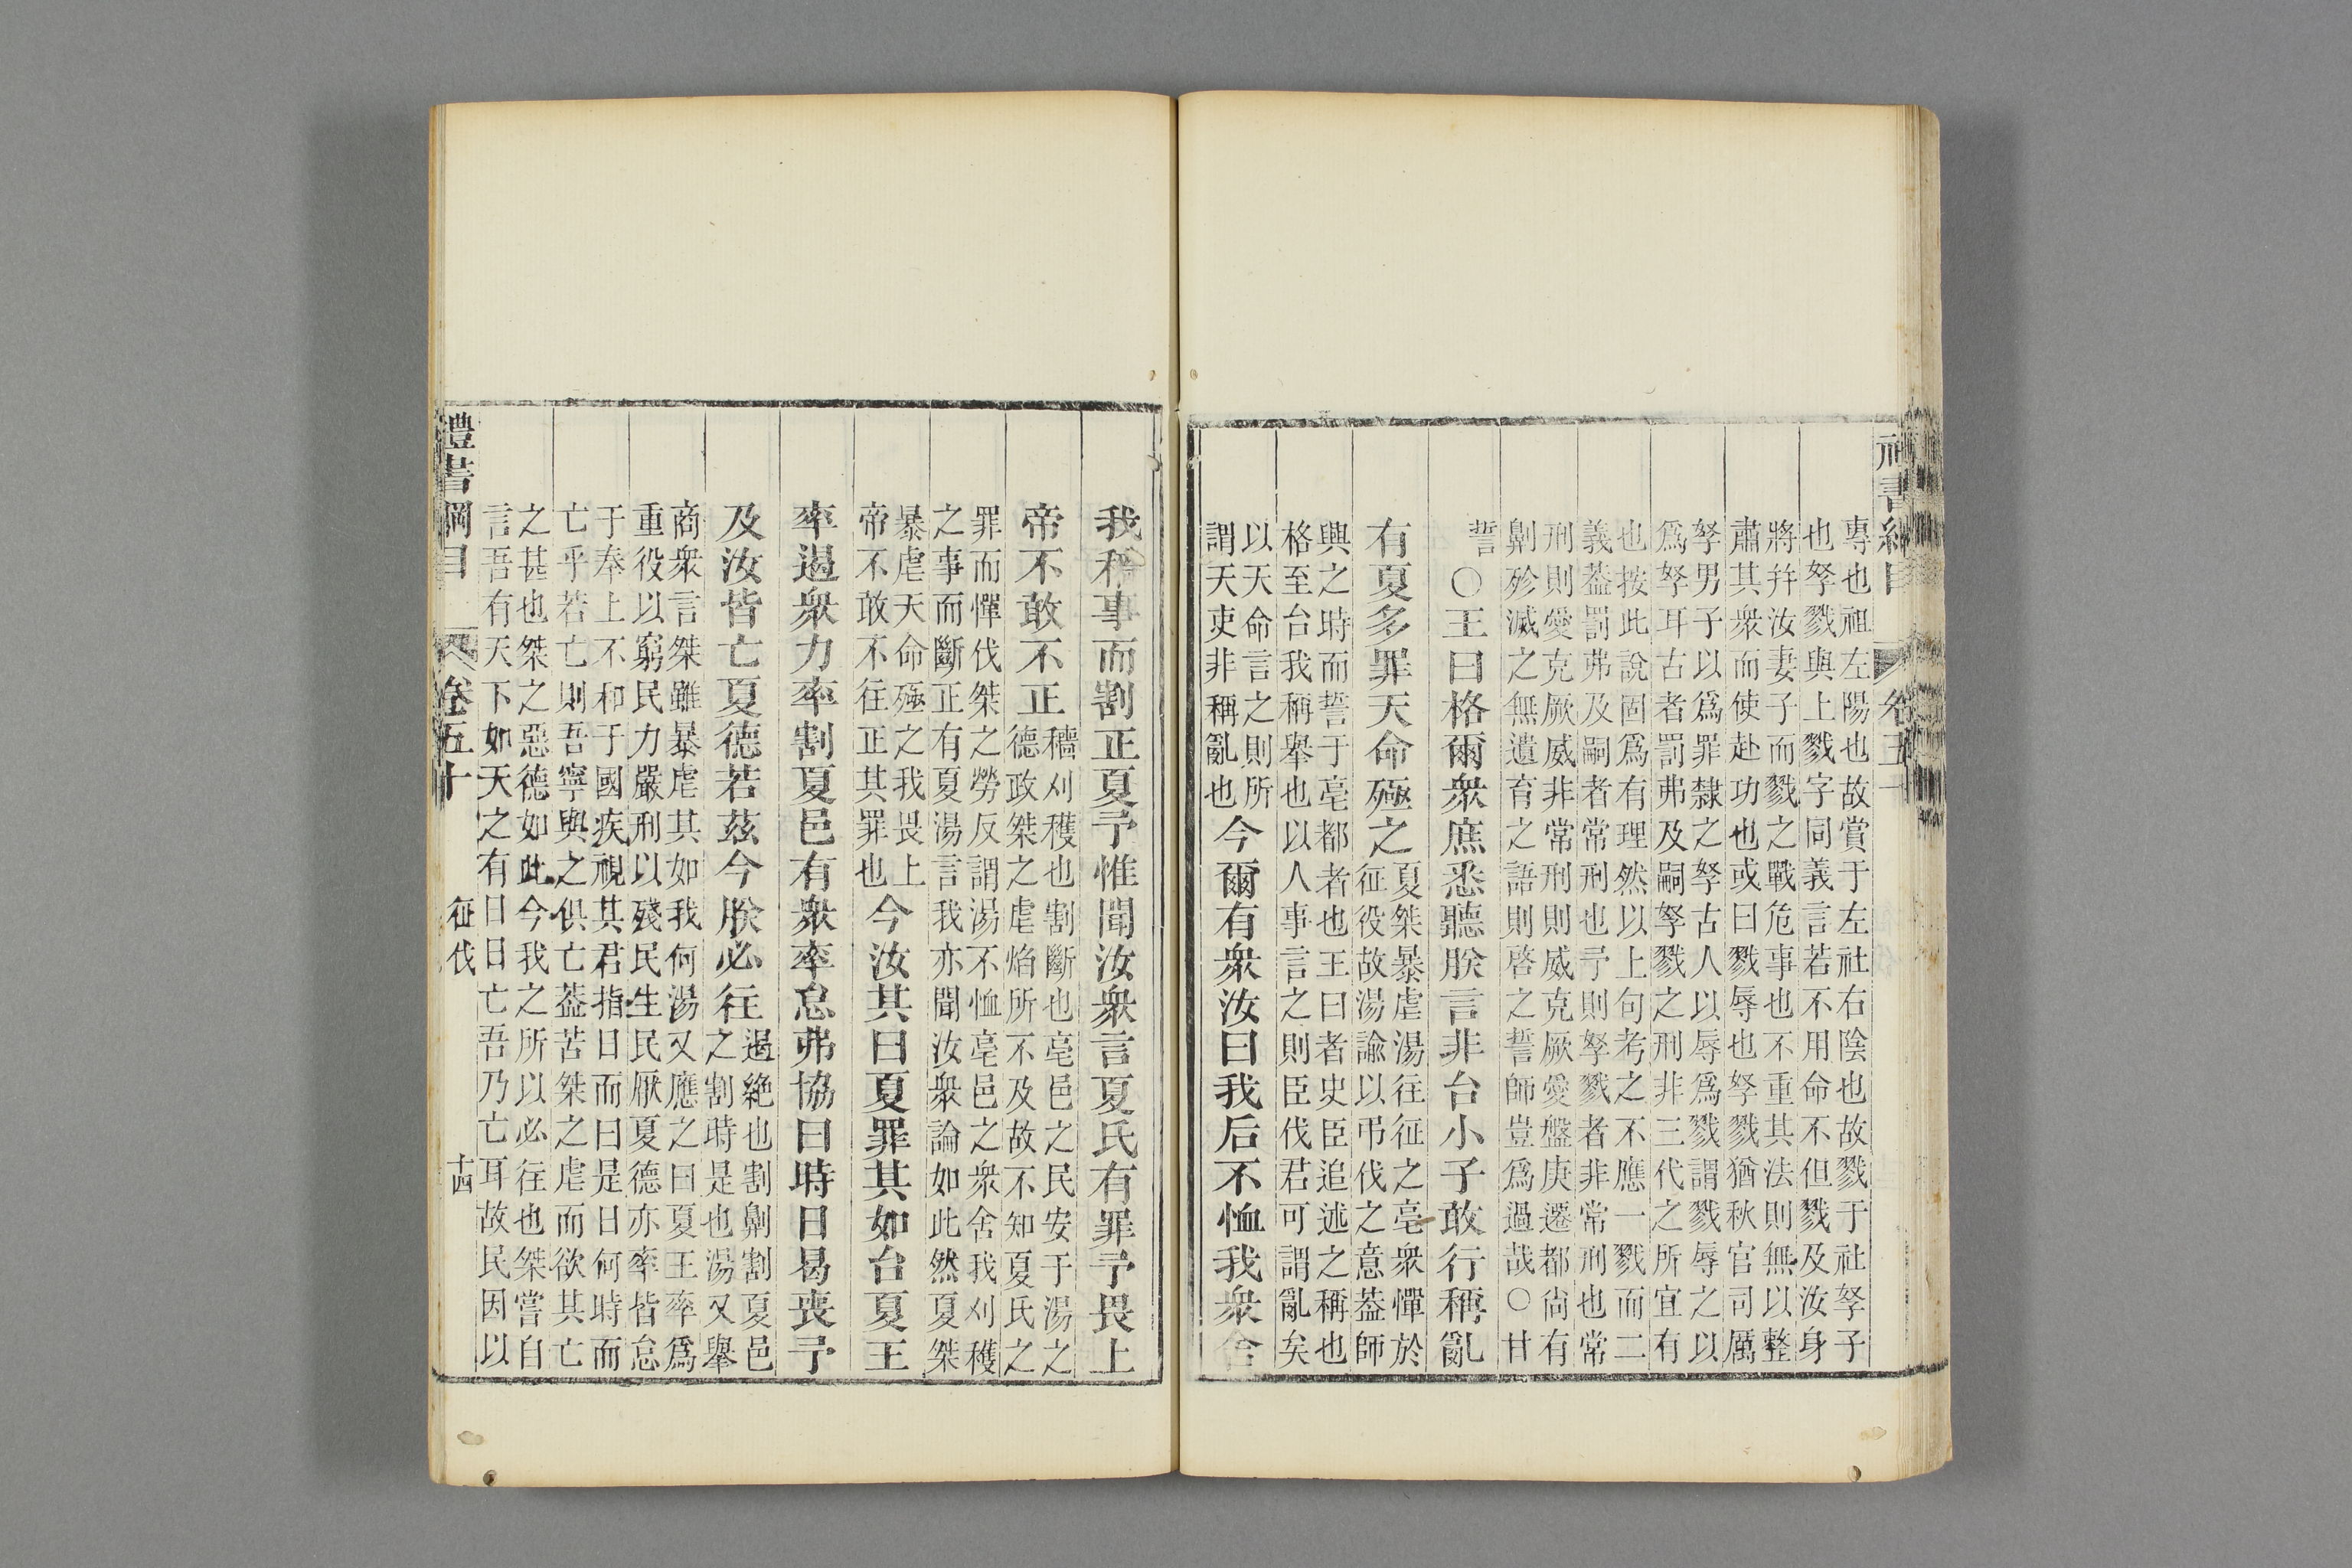 專也祖左陽也故賞于左社右陰也故戮于社孥子
也孥戮與上戮字同義言若不用命不但戮及汝身
將幷汝妻子而戮之戰危事也不重其法則無以整
肅其衆而使赴功也或曰戮辱也孥戮猶秋官司厲
孥男子以爲罪隸之孥古人以辱爲戮謂戮辱之以
爲孥耳古者罰弗及嗣孥戮之刑非三代之所宜有
也按此說固爲有理然以上句考之不應一戮而二
義葢罰弗及嗣者常刑也予則孥戮者非常刑也常
刑則愛克厥威非常刑則威克厥愛盤庚遷都尙有
劓殄滅之無遺育之語則啓之誓師豈爲過哉○甘
誓
○王曰格爾衆庶悉聽朕言非台小子敢行稱亂
有夏多罪天命殛之
夏桀暴虐湯往征之亳衆憚於
征役故湯諭以弔伐之意葢師
興之時而誓于亳都者也王曰者史臣追述之稱也
格至台我稱舉也以人事言之則臣伐君可謂亂矣
以天命言之則所
謂天吏非稱亂也
今爾有衆汝曰我后不恤我衆舍
我稱事而割正夏予惟聞汝衆言夏氏有罪予畏上
帝不敢不正
穡刈穫也割斷也亳邑之民安于湯之
德政桀之虐焰所不及故不知夏氏之
罪而憚伐桀之勞反謂湯不恤亳邑之衆舍我刈穫
之事而斷正有夏湯言我亦聞汝衆論如此然夏桀
暴虐天命殛之我畏上
帝不敢不往正其罪也
今汝其曰夏罪其如台夏王
率遏衆力率割夏邑有衆率怠弗協曰時日曷喪予
及汝皆亡夏德若茲今朕必往
遏絶也割劓割夏邑
之割時是也湯又舉
商衆言桀雖暴虐其如我何湯又應之曰夏王率爲
重役以窮民力嚴刑以殘民生民厭夏德亦率皆怠
于奉上不和于國疾視其君指日而曰是日何時而
亡乎若亡則吾寧與之俱亡葢苦桀之虐而欲其亡
之甚也桀之惡德如此今我之所以必往也桀嘗自
言吾有天下如天之有日日亡吾乃亡耳故民因以
禮書綱目 卷五十 征伐 十四